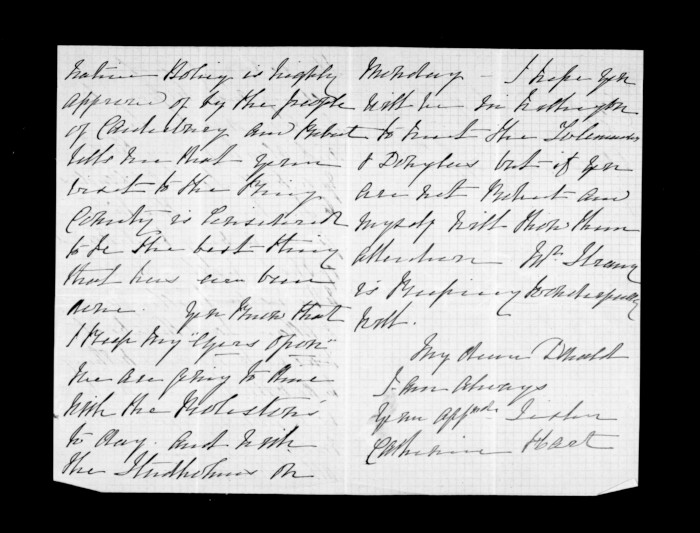 native Policy is highly
approved of by the people
of Canterbury and Robert
tells me that your
visit to the King
Country is considered
to be the best thing
that has ever been
done. You know that
I keep my "Eyes open"
We are going to dine
with the Rolestons
to day. and with
the Studholmes on
Monday – I hope you
will be in Wellington
to meet the
& Douglas but if you
are not Robert and
myself will show them
attention Mr Strang
is keeping
well.
My dear Donald
I am always
Your affecte Sister
Catherine Hart